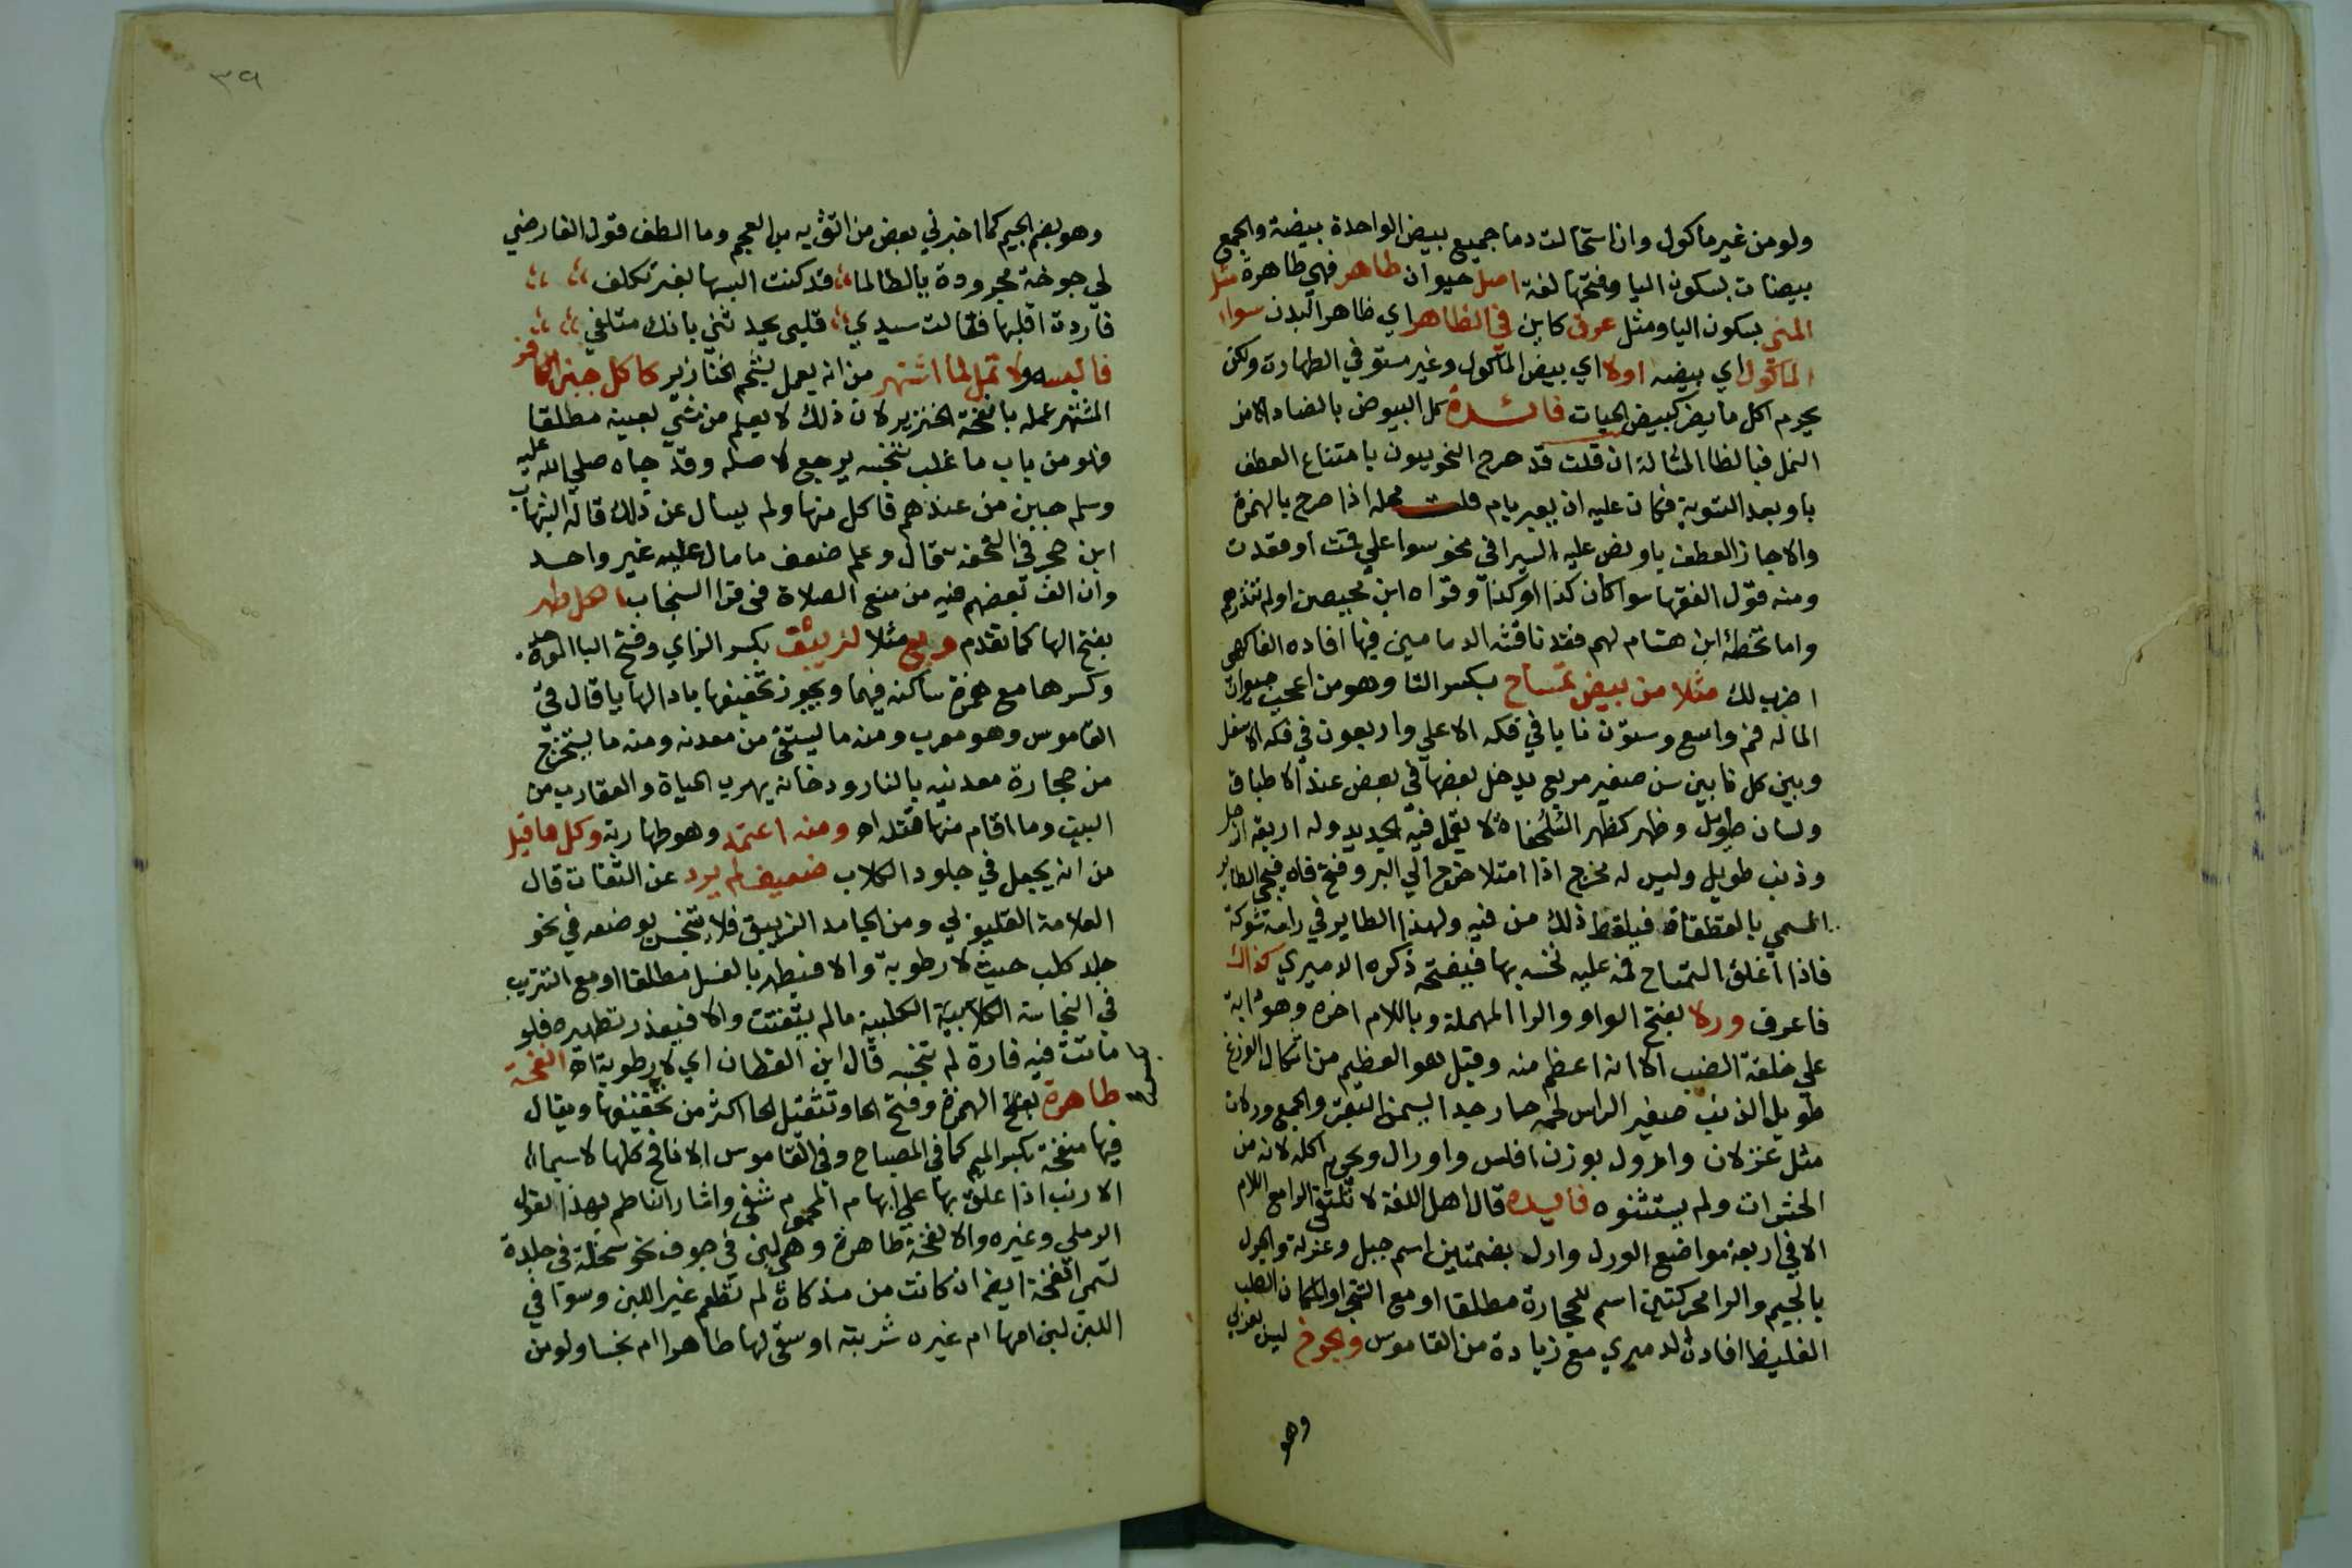 ولو من غير ماكول وان استحالت دما جميع بيض الواحدة بيضة والجمع
بيضات بسكون اليا وفتحها لغة اصل حيوان طاهر فهي طاهرة مثل
المني بسكون اليا ومثل عرق كاين في الظاهر اي ظاهر البدن سواء
الماكول اي بيضه اولا اي بيض الماكول وغير مستو في الطهارت ولكن
يحرم اكل ما يضر كبيض الحيات فائدة كل البيوض بالضاد الا من
النمل فبالظا المثالة ان قلت قد صرح النحويون بامتناع العطف
باو بعد التسوية فكان عليه ان يعبر بام قلت محله اذا صرح بالهمزة
والا جاز العطف باو نص عليه السيرافي نحو سوا علي قمت او قعدت
ومنه قول الفقها سوا كان كذا او كذا وقراه ابن محيصن او لم تنذرهم
واما تخطئة ابن هشام لهم فقد ناقشه الدماميني فيها افاده الفاكهي
اضرب لك مثلا من بيض تمساح بكسر التا وهو من اعجب حيوان
الما له فم واسع وستون نابا في فكه الاعلي واربعون في فكه الاسفل
وبين كل نابين سن صغير مربع يدخل بعضها في بعض عند الاطباق
ولسان طويل وظهر كظهر السلحفاة لا يعمل فيه الحديد وله اربعة ارجل
وذنب طويل وليس له مخرج اذا امتلا خرج الي البر وفتح فاه فيجي الطاير
المسمي بالقطقاط فيلقط ذلك من فيه ولهذا الطاير في راسه شوكة
فاذا اغلق التمساح فمه عليه نخسه بها فيفتحه ذكره الدميري كذاك
فاعرف ورلا بفتح الواو والرا المهملة وباللام اخره وهو دابة
علي خلقة الضب الا انه اعظم منه وقيل هو العظيم من اشكال الوزغ
طويل الذنب صغير الراس لحمه حار جدا يسمن والجمع ورلان
مثل غزلان واورل بوزن افلس واورال ويحرم اكله لانه من
الحشرات ولم يستثنوه فايده قال اهل اللغة لا تلتقي الرا مع اللام
الا في اربعة مواضع الورل وارل بضمتين اسم جبل وغرلة والجرل
بالجيم والرا محركتين اسم للحجارة مطلقا او مع الشجر او المكان الصلب
الغليظ افاده الدميري مع زيادة من القاموس والجوخ ليس بعربي
وهو
٣٩
وهو بضم الجيم كما اخبرني بعض من اثق به من العجم وما الطف قول الفارضي
لي جوخة مجرودة يا لطالما قد كنت البسها بغير تكلف
فاردت اقلبها فقالت سيدي قلبي يحدثني بانك متلفي
فالبسه ولا تمل لما اشتهر من انه يعمل بشحم الخنازير كاكل جبن الكافر
المشتهر عمله بانفحة الخنزير لان ذلك لا يعلم من شي بعينه مطلقا
فهو من باب ما غلب تنجسه يرجع لاصله وقد جاه صلي الله عليه
وسلم جبن من عندهم فاكل منها ولم يسال عن ذلك قاله الشهاب
ابن حجر في التحفة قال وعلم ضعف ما مال عليه غير واحد
وان الف بعضهم فيه من منع الصلاة في فرا السنجاب اهل طهر
بفتح الها كما تقدم وبع مثلا لزيبق بكسر الزاي وفتح البا الموحدة
وكسرها مع همزة ساكنه فيهما ويجوز تخفيفها بابدالها يا قال في
القاموس وهو معرب ومنه ما يستقي من معدنه ومنه ما يستخرج
من حجارة معدنيه بالنار ودخانه يهرب الحياة والعقارب من
البيت وما اقام منها قتله اه ومنه اعتمد وهو طهارته وكل ما قيل
من انه يجعل في جلود الكلاب ضعيف لم يرد عن الثقات قال
العلامة القليوبي ومن الجامد الزيبق فلا يتنجس بوضعه في نحو
جلد كلب حيث لا رطوبة والا فيطهر بالغسل مطلقا او مع التتريب
في النجاسة الكلبية ما لم يتفتت والا فيعذر تطهيره فلو
ماتت فيه فارة لم تنجسه قال ابن القطان اي لا رطوبة اه انفحة
طاهرة بفتح الهمزة وفتح الحا وتثقيل الحا اكثر من تخفيفها ويقال
فيها منفحة بكسر الميم كما في المصباح وفي القاموس الانافح كلها لاسيما
الارنب اذا علق بها علي ابهام المحموم شفي واشار الناظم بهذا لقول
الرملي وغيره والانفحة طاهرة وهي لبن في جوف نحو سخلة في جلدة
تسمي انفحة ايضا ان كانت من مذكاة لم تطعم غير اللبن وسوا في
اللبن لبن امها ام غيره شربته او سقي لها طاهرا ام نجسا ولو من